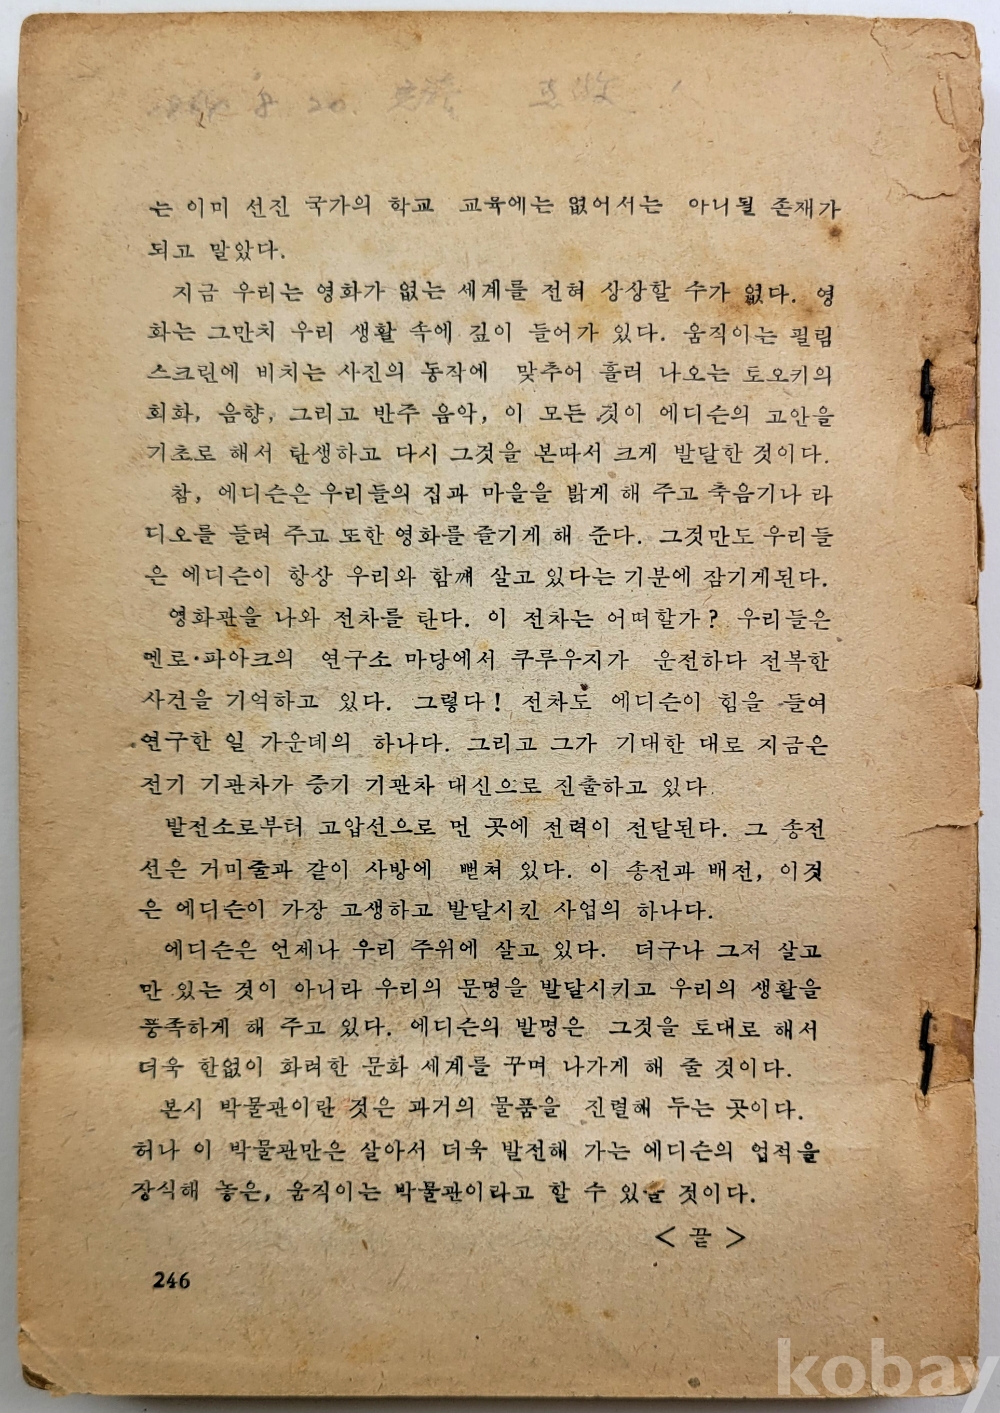 는 이미 선진 국가의 학교 교육에는 없어서는 아니될 존재가
되고 말았다.
지금 우리는 영화가 없는 세계를 전혀 상상할 수가 없다. 영
화는 그만치 우리 생활 속에 깊이 들어가 있다. 움직이는 필림
스크린에 비치는 사진의 동작에 맞추어 흘러 나오는 토오키의
회화, 음향, 그리고 반주 음악, 이 모든 것이 에디슨의 고안을
기초로 해서 탄생하고 다시 그것을 본따서 크게 발달한 것이다.
참, 에디슨은 우리들의 집과 마을을 밝게 해 주고 축음기나 라
디오를 들려 주고 또한 영화를 즐기게 해 준다. 그것만도 우리들
은 에디슨이 항상 우리와 함께 살고 있다는 기분에 잠기게된다.
영화관을 나와 전차를 탄다. 이 전차는 어떠할가? 우리들은
멘로·파아크의 연구소 마당에서 쿠루우지가 운전하다 전복한
사건을 기억하고 있다. 그렇다! 전차도 에디슨이 힘을 들여
연구한 일 가운데의 하나다. 그리고 그가 기대한 대로 지금은
전기 기관차가 증기 기관차 대신으로 진출하고 있다.
발전소로부터 고압선으로 먼 곳에 전력이 전달된다. 그 송전
선은 거미줄과 같이 사방에 뻗쳐 있다. 이 송전과 배전, 이것
은 에디슨이 가장 고생하고 발달시킨 사업의 하나다.
에디슨은 언제나 우리 주위에 살고 있다. 더구나 그저 살고
만 있는 것이 아니라 우리의 문명을 발달시키고 우리의 생활을
풍족하게 해 주고 있다. 에디슨의 발명은 그것을 토대로 해서
더욱 한없이 화려한 문화 세계를 꾸며 나가게 해 줄 것이다.
본시 박물관이란 것은 과거의 물품을 진렬해 두는 곳이다.
허나 이 박물관만은 살아서 더욱 발전해 가는 에디슨의 업적을
장식해 놓은, 움직이는 박물관이라고 할 수 있을 것이다.
< 끝 >
246
kobay